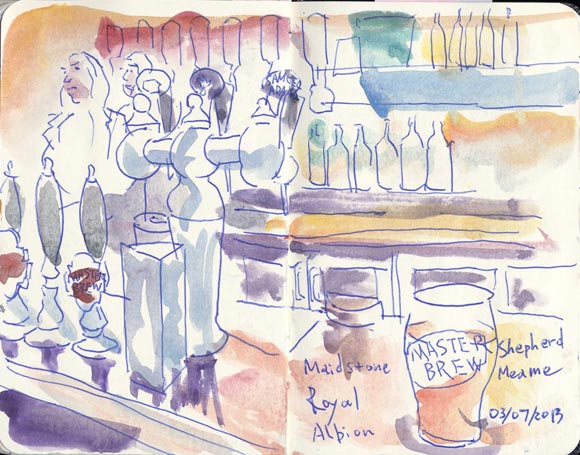 MASTER
BREW
Maidstone
Royal
Albion
MASTER
BREW
Shepherd
Meame
03/07/2013